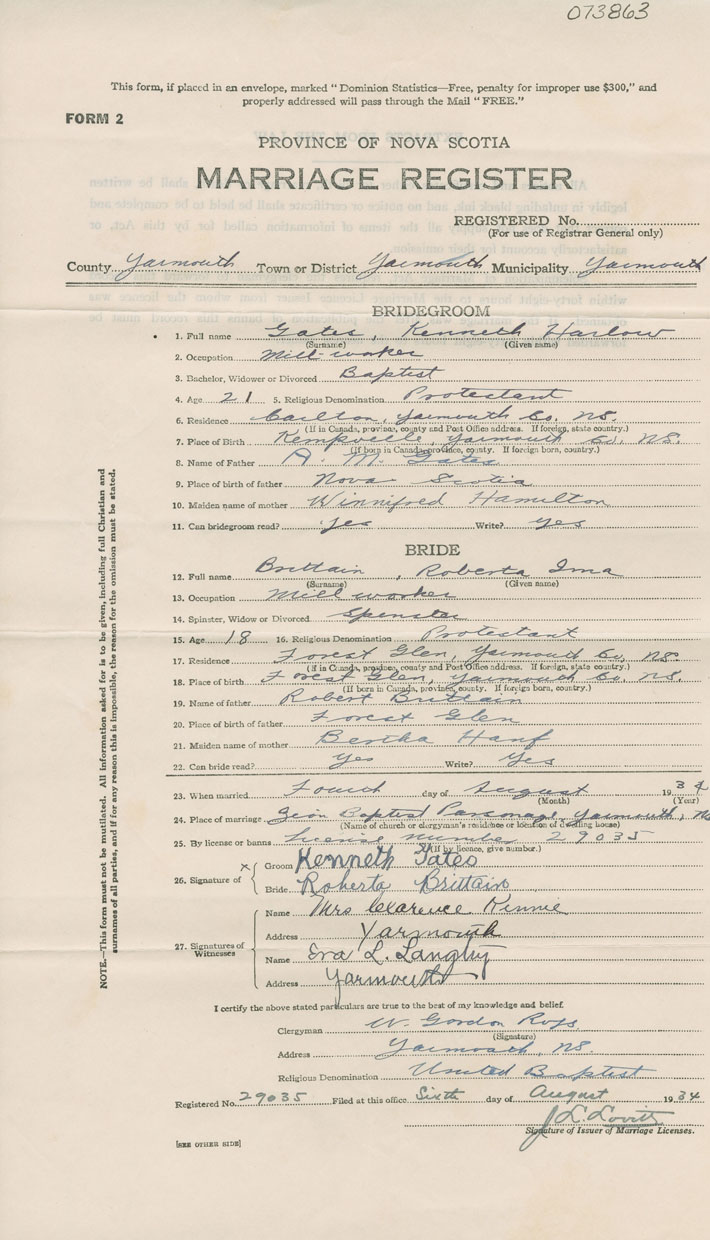 073863
This form, if placed in an envelope, marked "Dominion Statistics—Free, penalty for improper use $300," and
properly addressed will pass through the Mail "FREE."
FORM 2
PROVINCE OF NOVA SCOTIA
MARRIAGE REGISTER
REGISTERED No.
(For use of Registrar General only)
County Yarmouth Town or District Yarmouth Municipality Yarmouth
BRIDEGROOM
1. Full name Gates, Kenneth Harlow
(Surname) (Given name)
2. Occupation Mill-worker
3. Bachelor, Widower or Divorced Baptist
4. Age 21 5. Religious Denomination Protestant
6. Residence Carlton, Yarmouth Co, NS.
(If in Canada, province, county and Post Office address. If foreign, state country.)
7. Place of Birth Kemptville, Yarmouth Co, NS.
(If born in Canada, province, county. If foreign born, country.)
8. Name of Father A. M. Gates
9. Place of birth of father Nova Scotia
10. Maiden name of mother Winnifred Hamilton
11. Can bridegroom read? Yes Write? Yes
BRIDE
12. Full name Brittain, Roberta Ima
(Surname) (Given name)
13. Occupation Mill worker
14. Spinster, Widow or Divorced Spinster
15. Age 18 16. Religious Denomination Protestant
17. Residence Forest Glen, Yarmouth Co, NS.
(If in Canada, province, county and Post Office address. If foreign, state country.)
18. Place of birth Forest Glen, Yarmouth Co. NS.
(If born in Canada, province, county. If foreign born, country.)
19. Name of father Robert Brittain
20. Place of birth of father Forest Glen
21. Maiden name of mother Bertha Hanf
22. Can bride read? Yes Write? Yes
23. When married Fourth day of August 1934
(Month) (Year)
24. Place of marriage Zion Baptist Parsonage, Yarmouth,
(Name of church or clergyman's residence or location of dwelling house)
25. By license or banns License Number 29035
(If by licence, give number.)
26. Signature of
x Groom Kenneth Gates
Bride Roberta Brittain
27. Signatures of Witnesses
Name Mrs Clarence Kinnie
Address Yarmouth
Name Eva L. Langley
Address Yarmouth
I certify the above stated particulars are true to the best of my knowledge and belief.
Clergyman W. Gordon Ross
(Signature)
Address Yarmouth, NS.
Religious Denomination United Baptist
Registered No. 29035 Filed at this office Sixth day of August 1934
J L Lovitt
Signature of Issuer of Marriage Licenses.
[SEE OTHER SIDE]
NOTE.—This form must not be mutilated. All information asked for is to be given, including full Christian and
surnames of all parties, and if for any reason this is impossible, the reason for the omission must be stated.